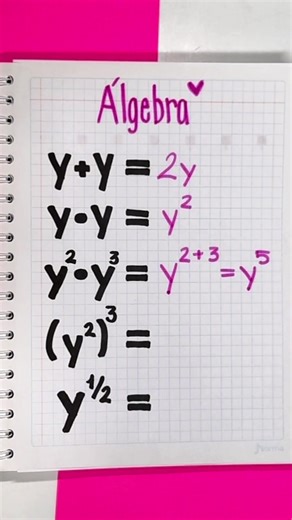 Álgebra
y+y = 2y
y·y = y²
y²·y³ = y²⁺³ = y⁵
(y²)³ =
y^½ =